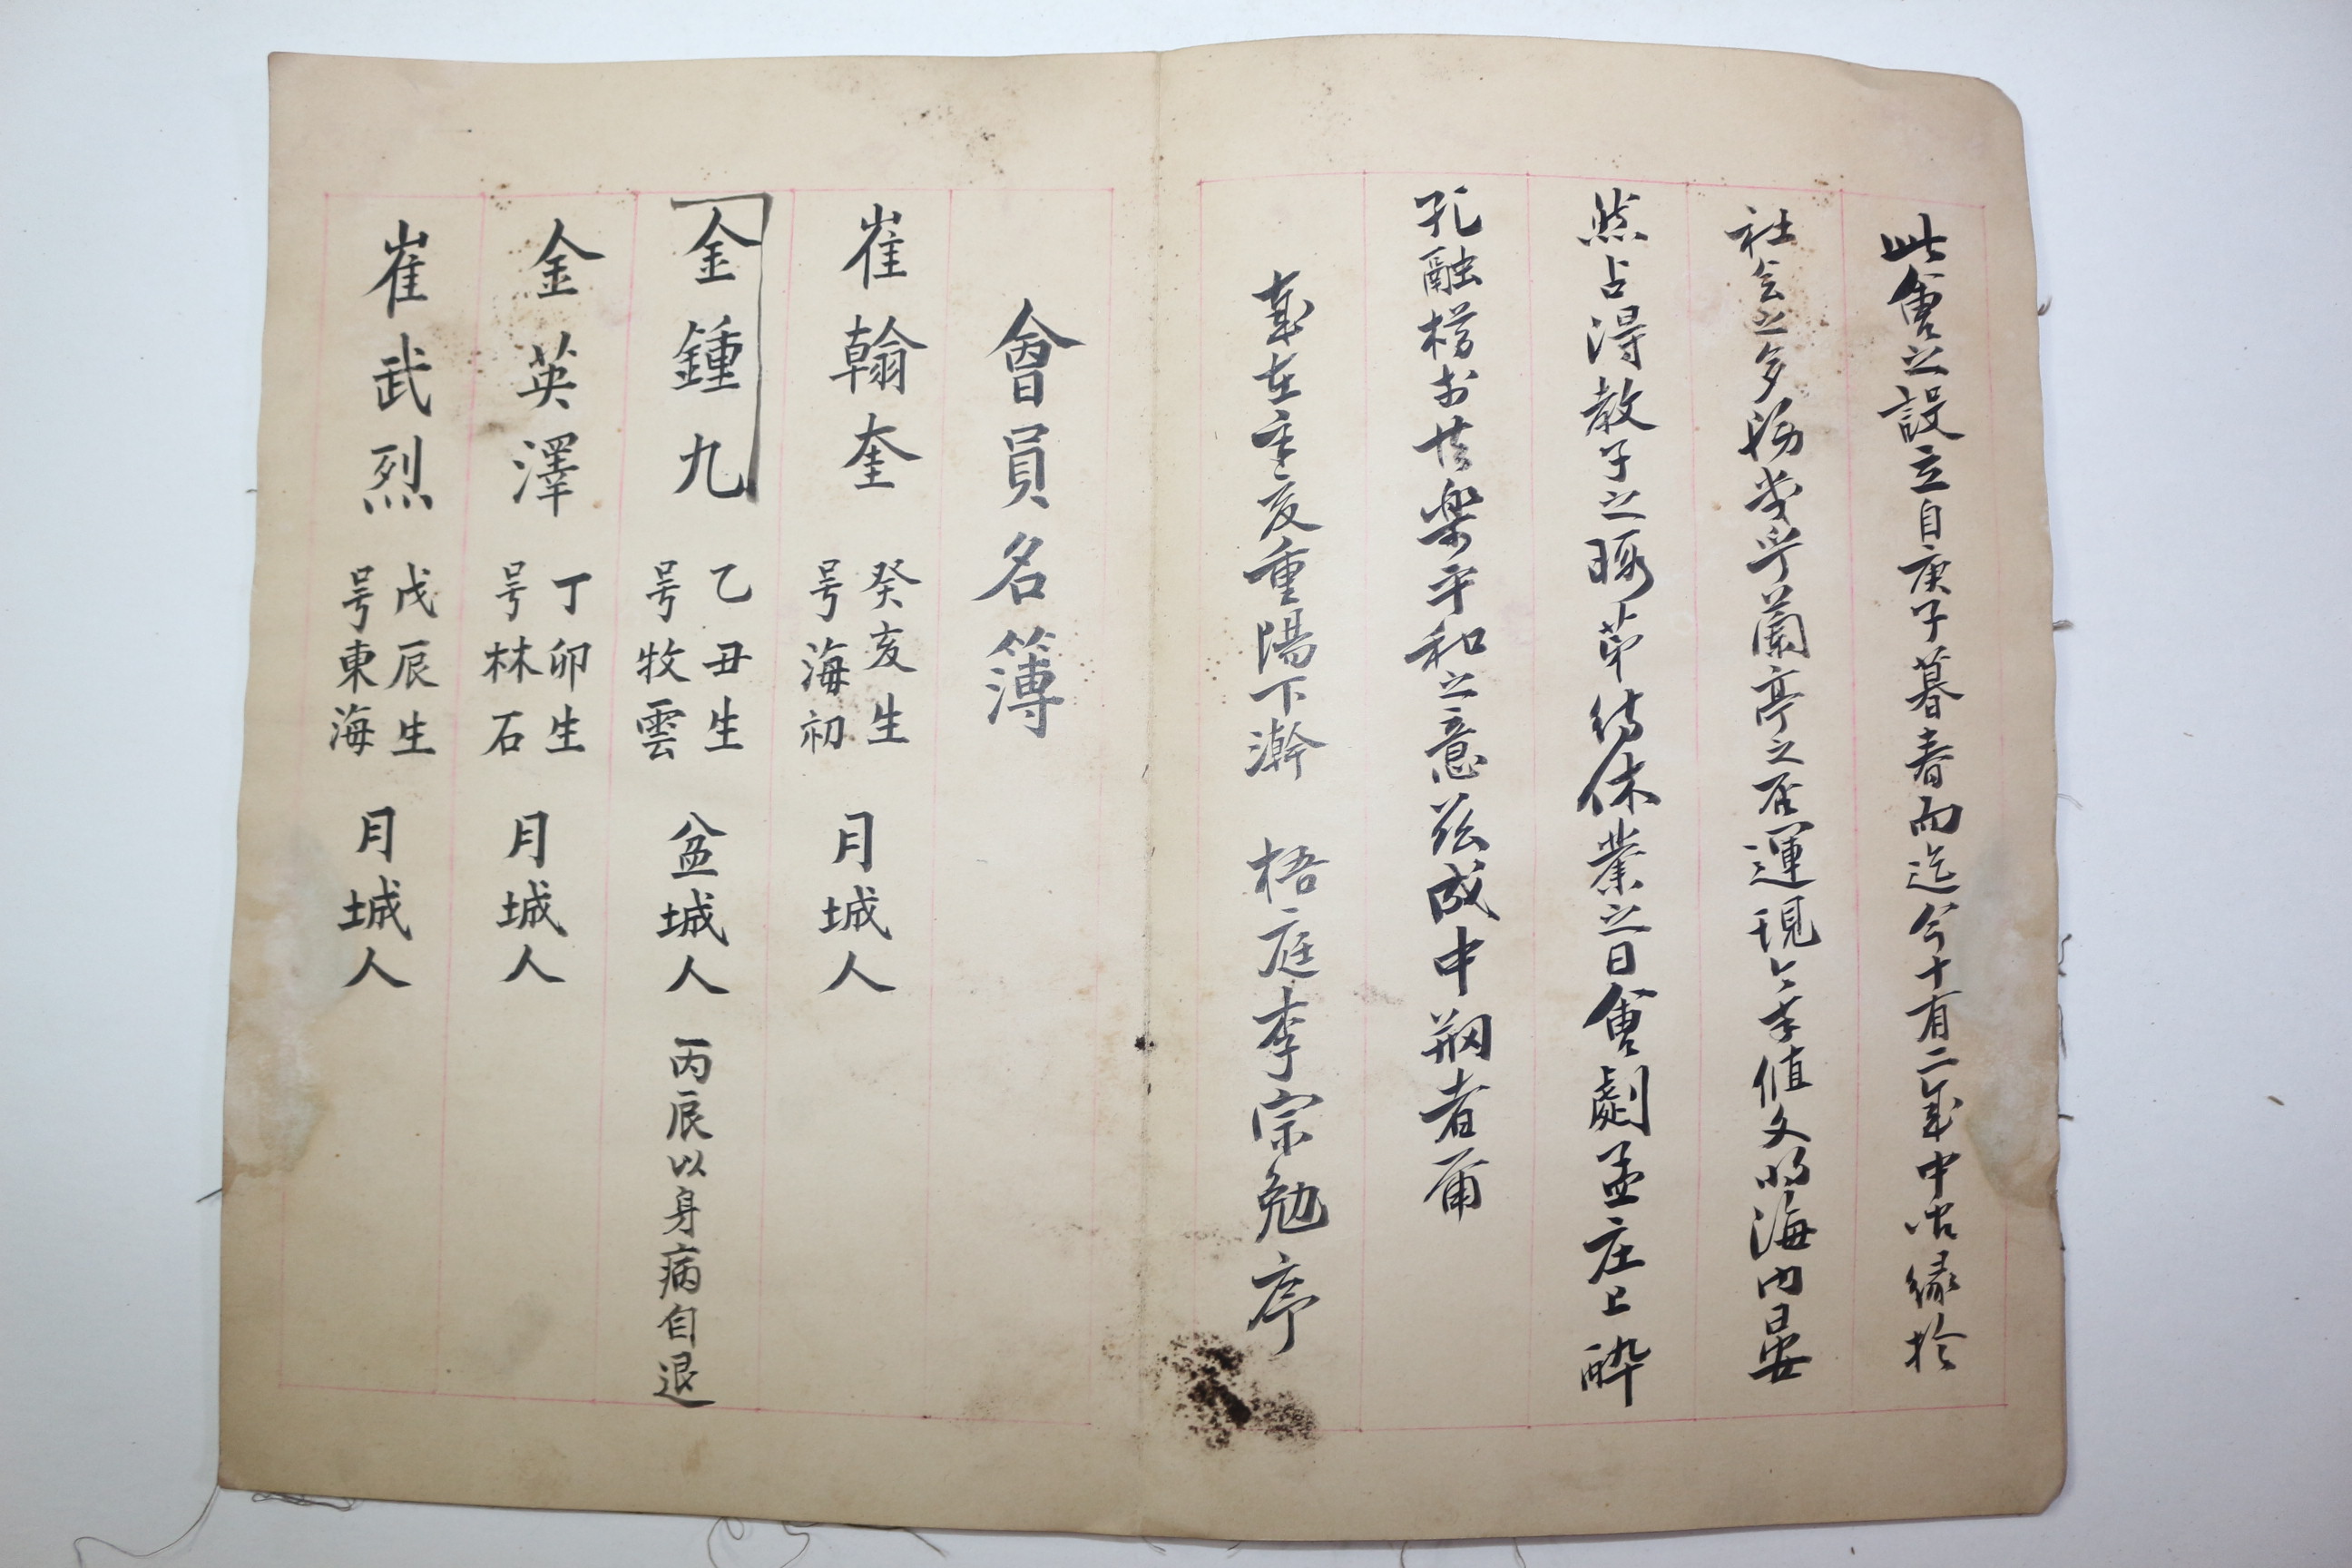 此會之設立自庚子暮春而迄今十有二年中沽緣於
社会之多務幾乎蘭亭之否運現今幸值文明海內晏
然占得教子之暇苐待休業之日會劇孟庄上醉
孔融樽於共樂平和之意茲成中剏者甭
歲在辛亥重陽下澣 梧庭李宗勉序
會員名簿
崔翰奎 癸亥生 号海初 月城人
金鍾九 乙丑生 号牧雲 盆城人 丙辰以身病自退
金英澤 丁卯生 号林石 月城人
崔武烈 戊辰生 号東海 月城人